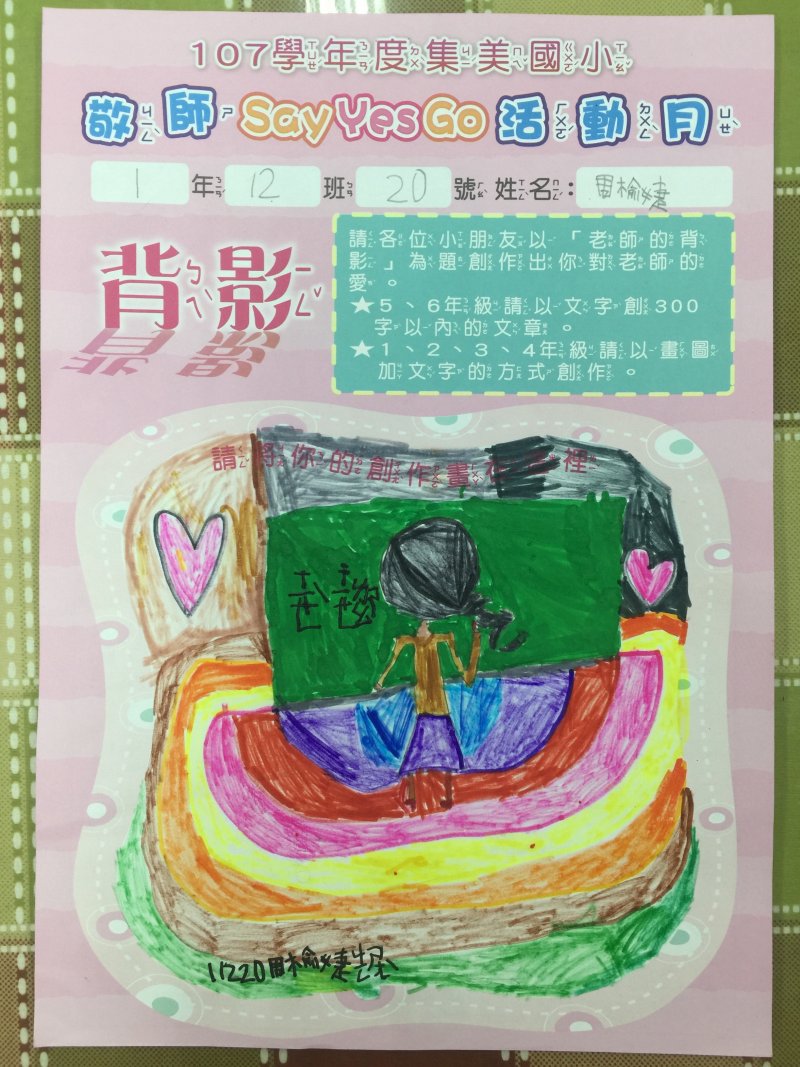 107學年度集美國小
敬師Say Yes Go活動月
1年12班20號姓名：周榆婕
背影
請各位小朋友以「老師的背
影」為題創作出你對老師的
愛。
★5、6年級請以文字創300
字以內的文章。
★1、2、3、4年級請以畫圖
加文字的方式創作。
請將你的創作畫在 裡
ㄒㄧㄝˋ ㄒㄧㄝ˙你
11220周榆婕